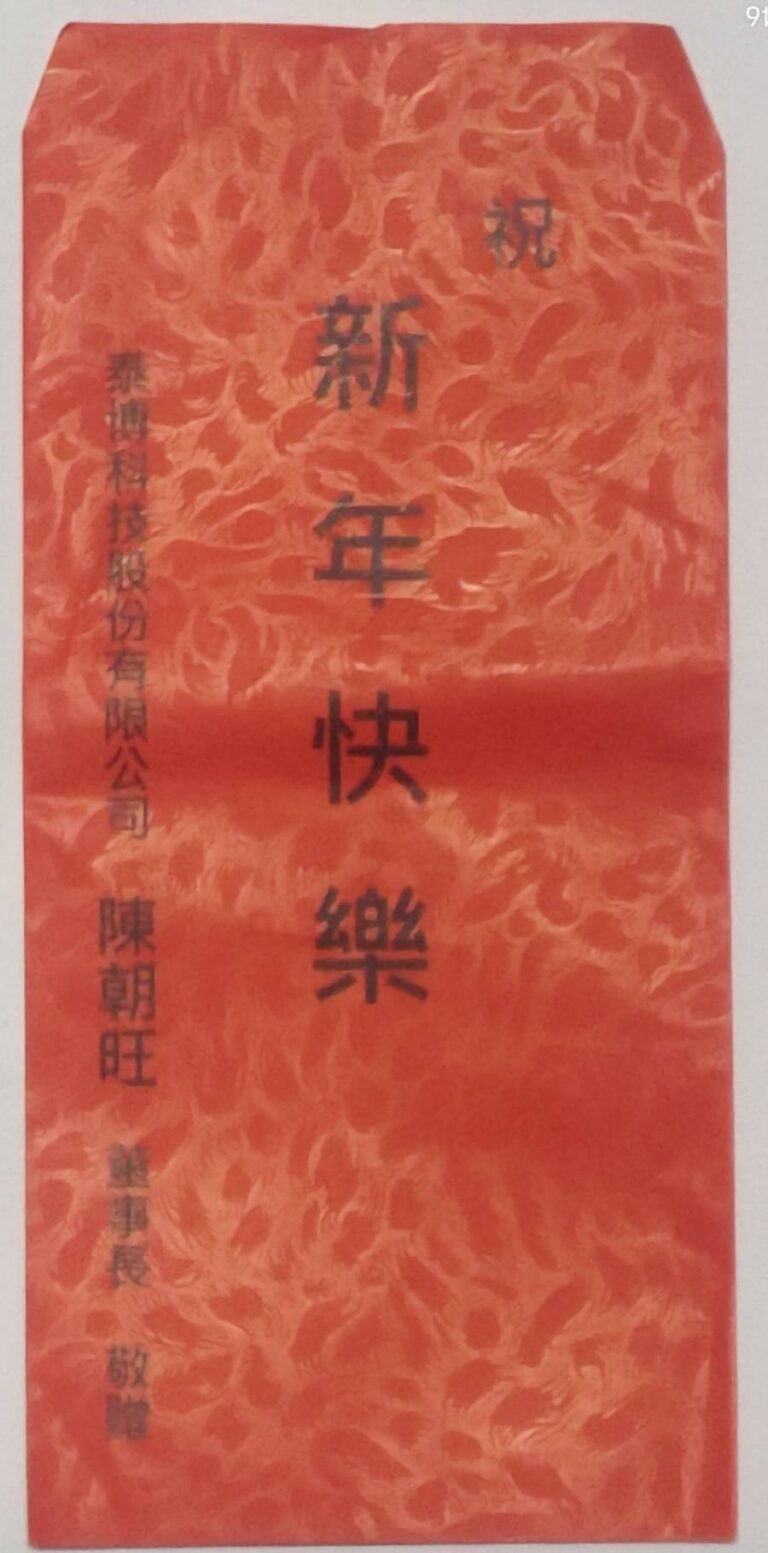 祝
新年快樂
泰博科技股份有限公司 陳朝旺 董事長 敬贈